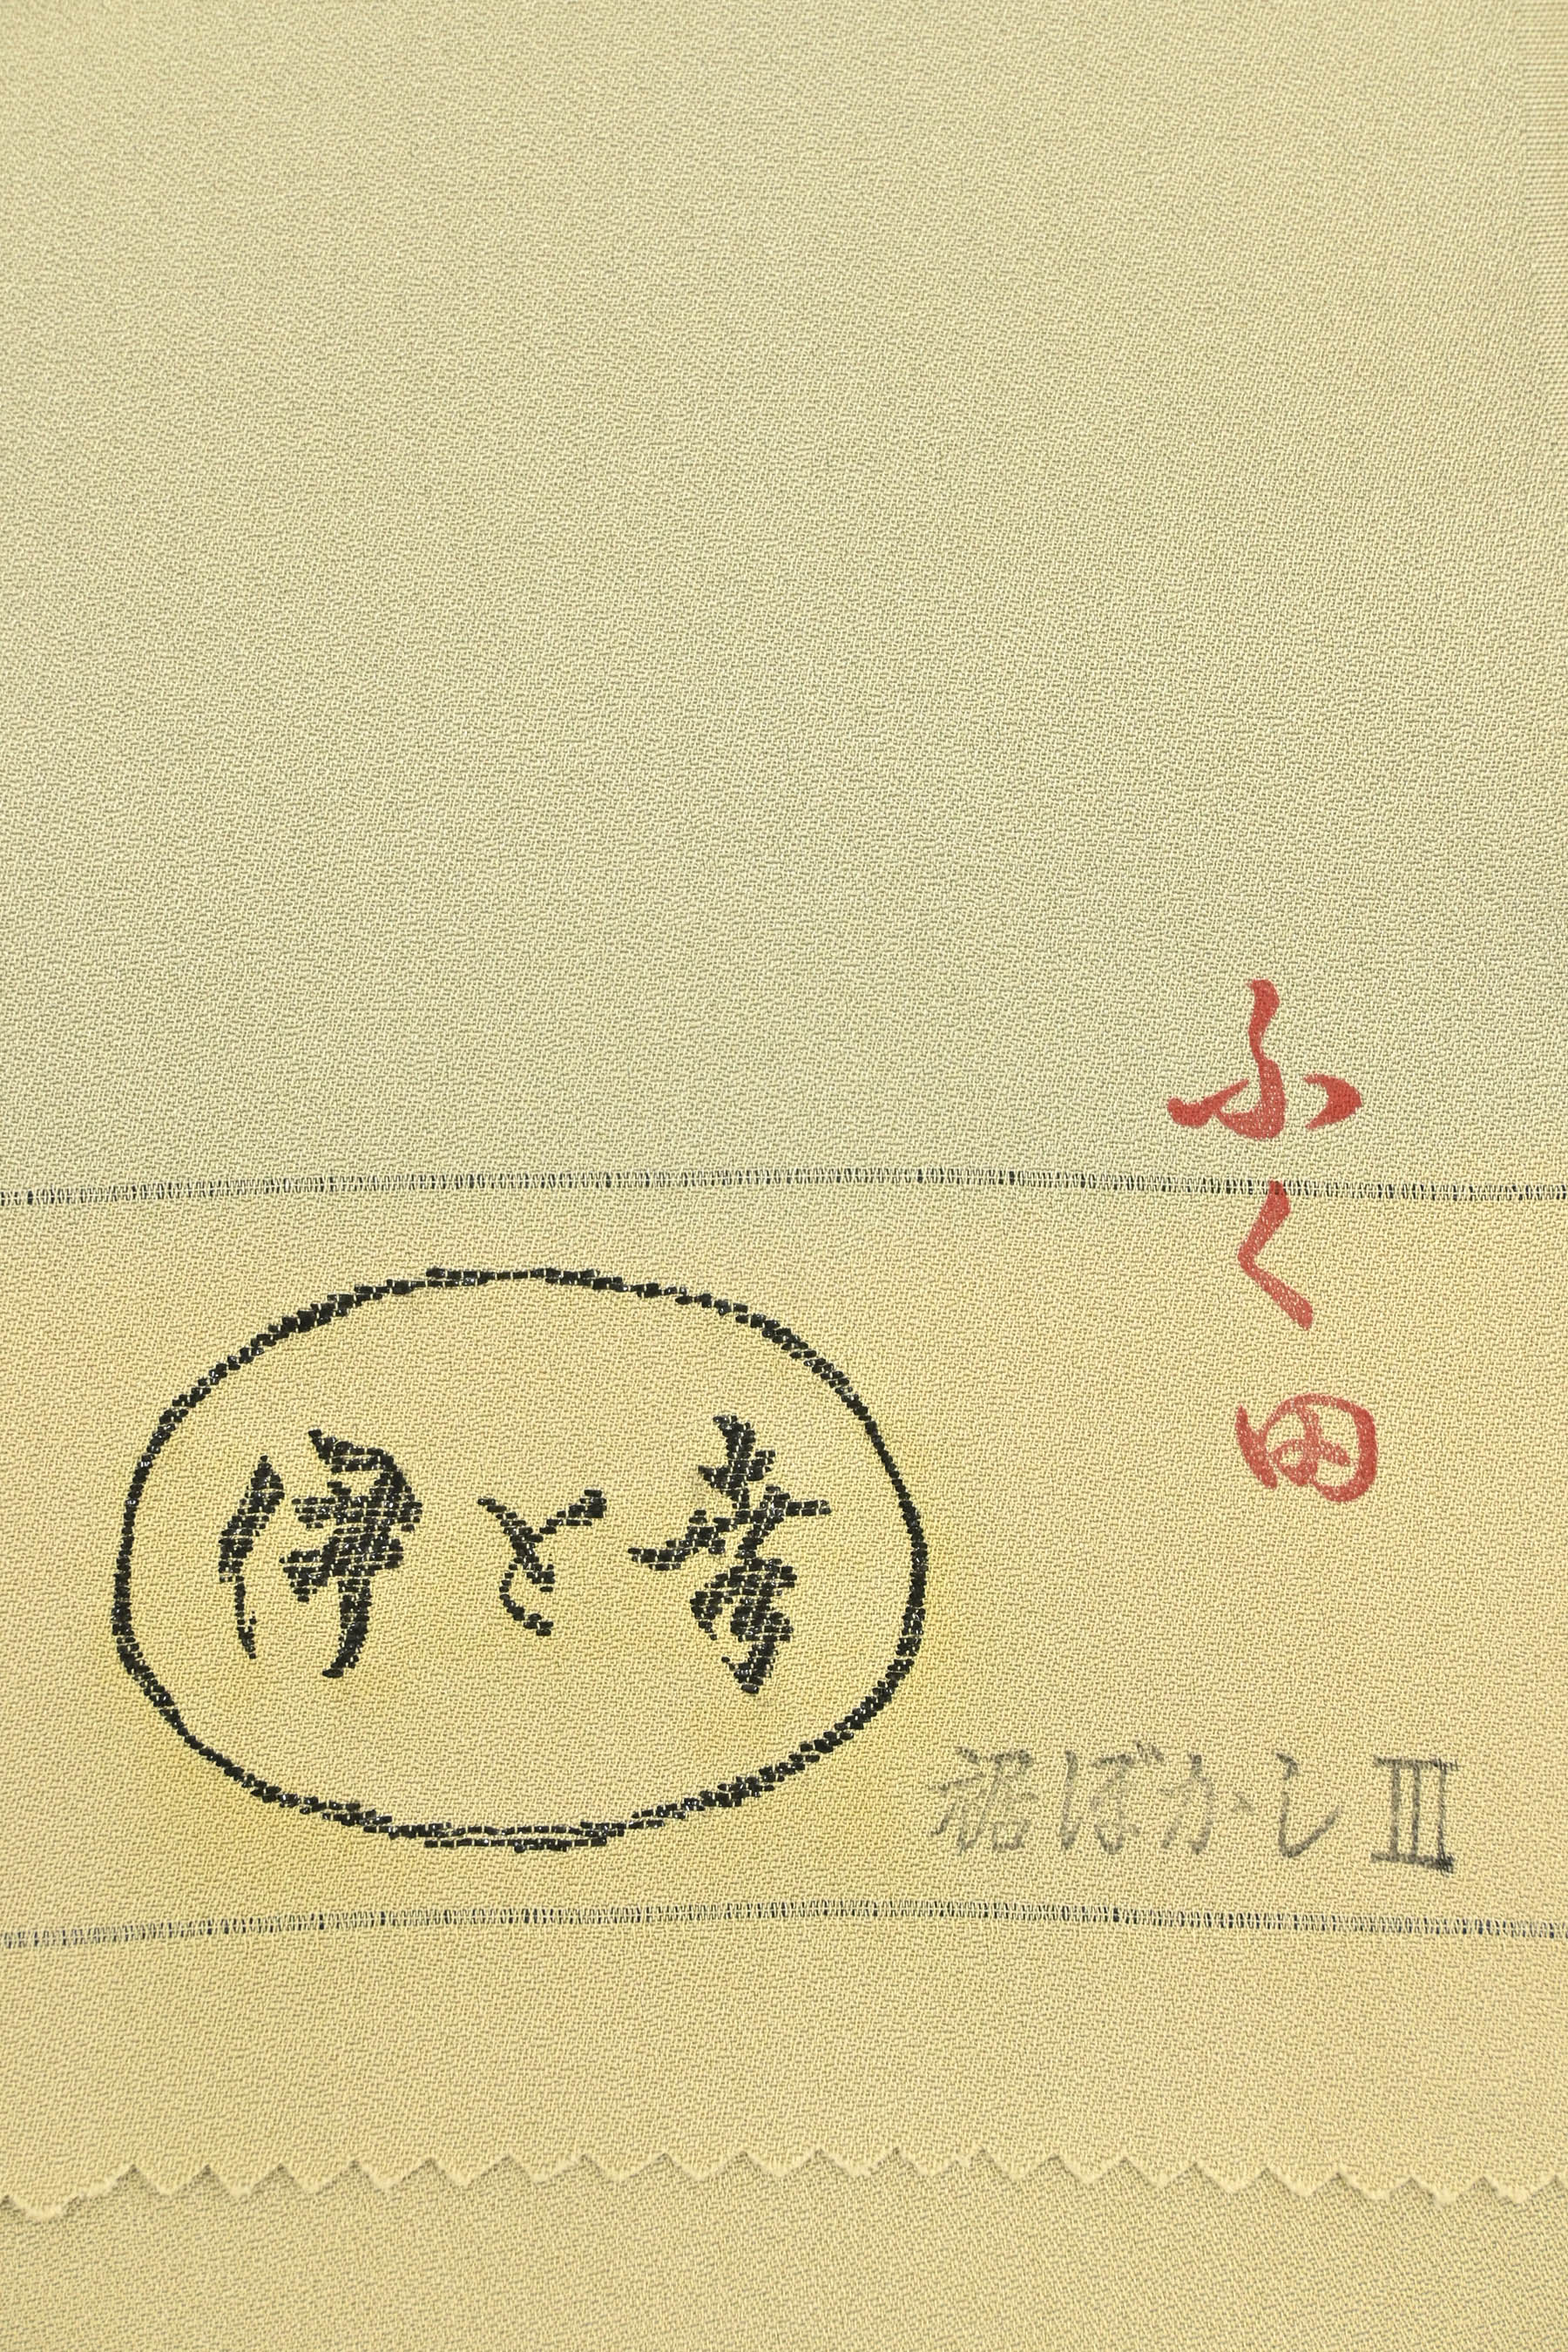 ふく田
伊と幸
裾ぼかしⅢ